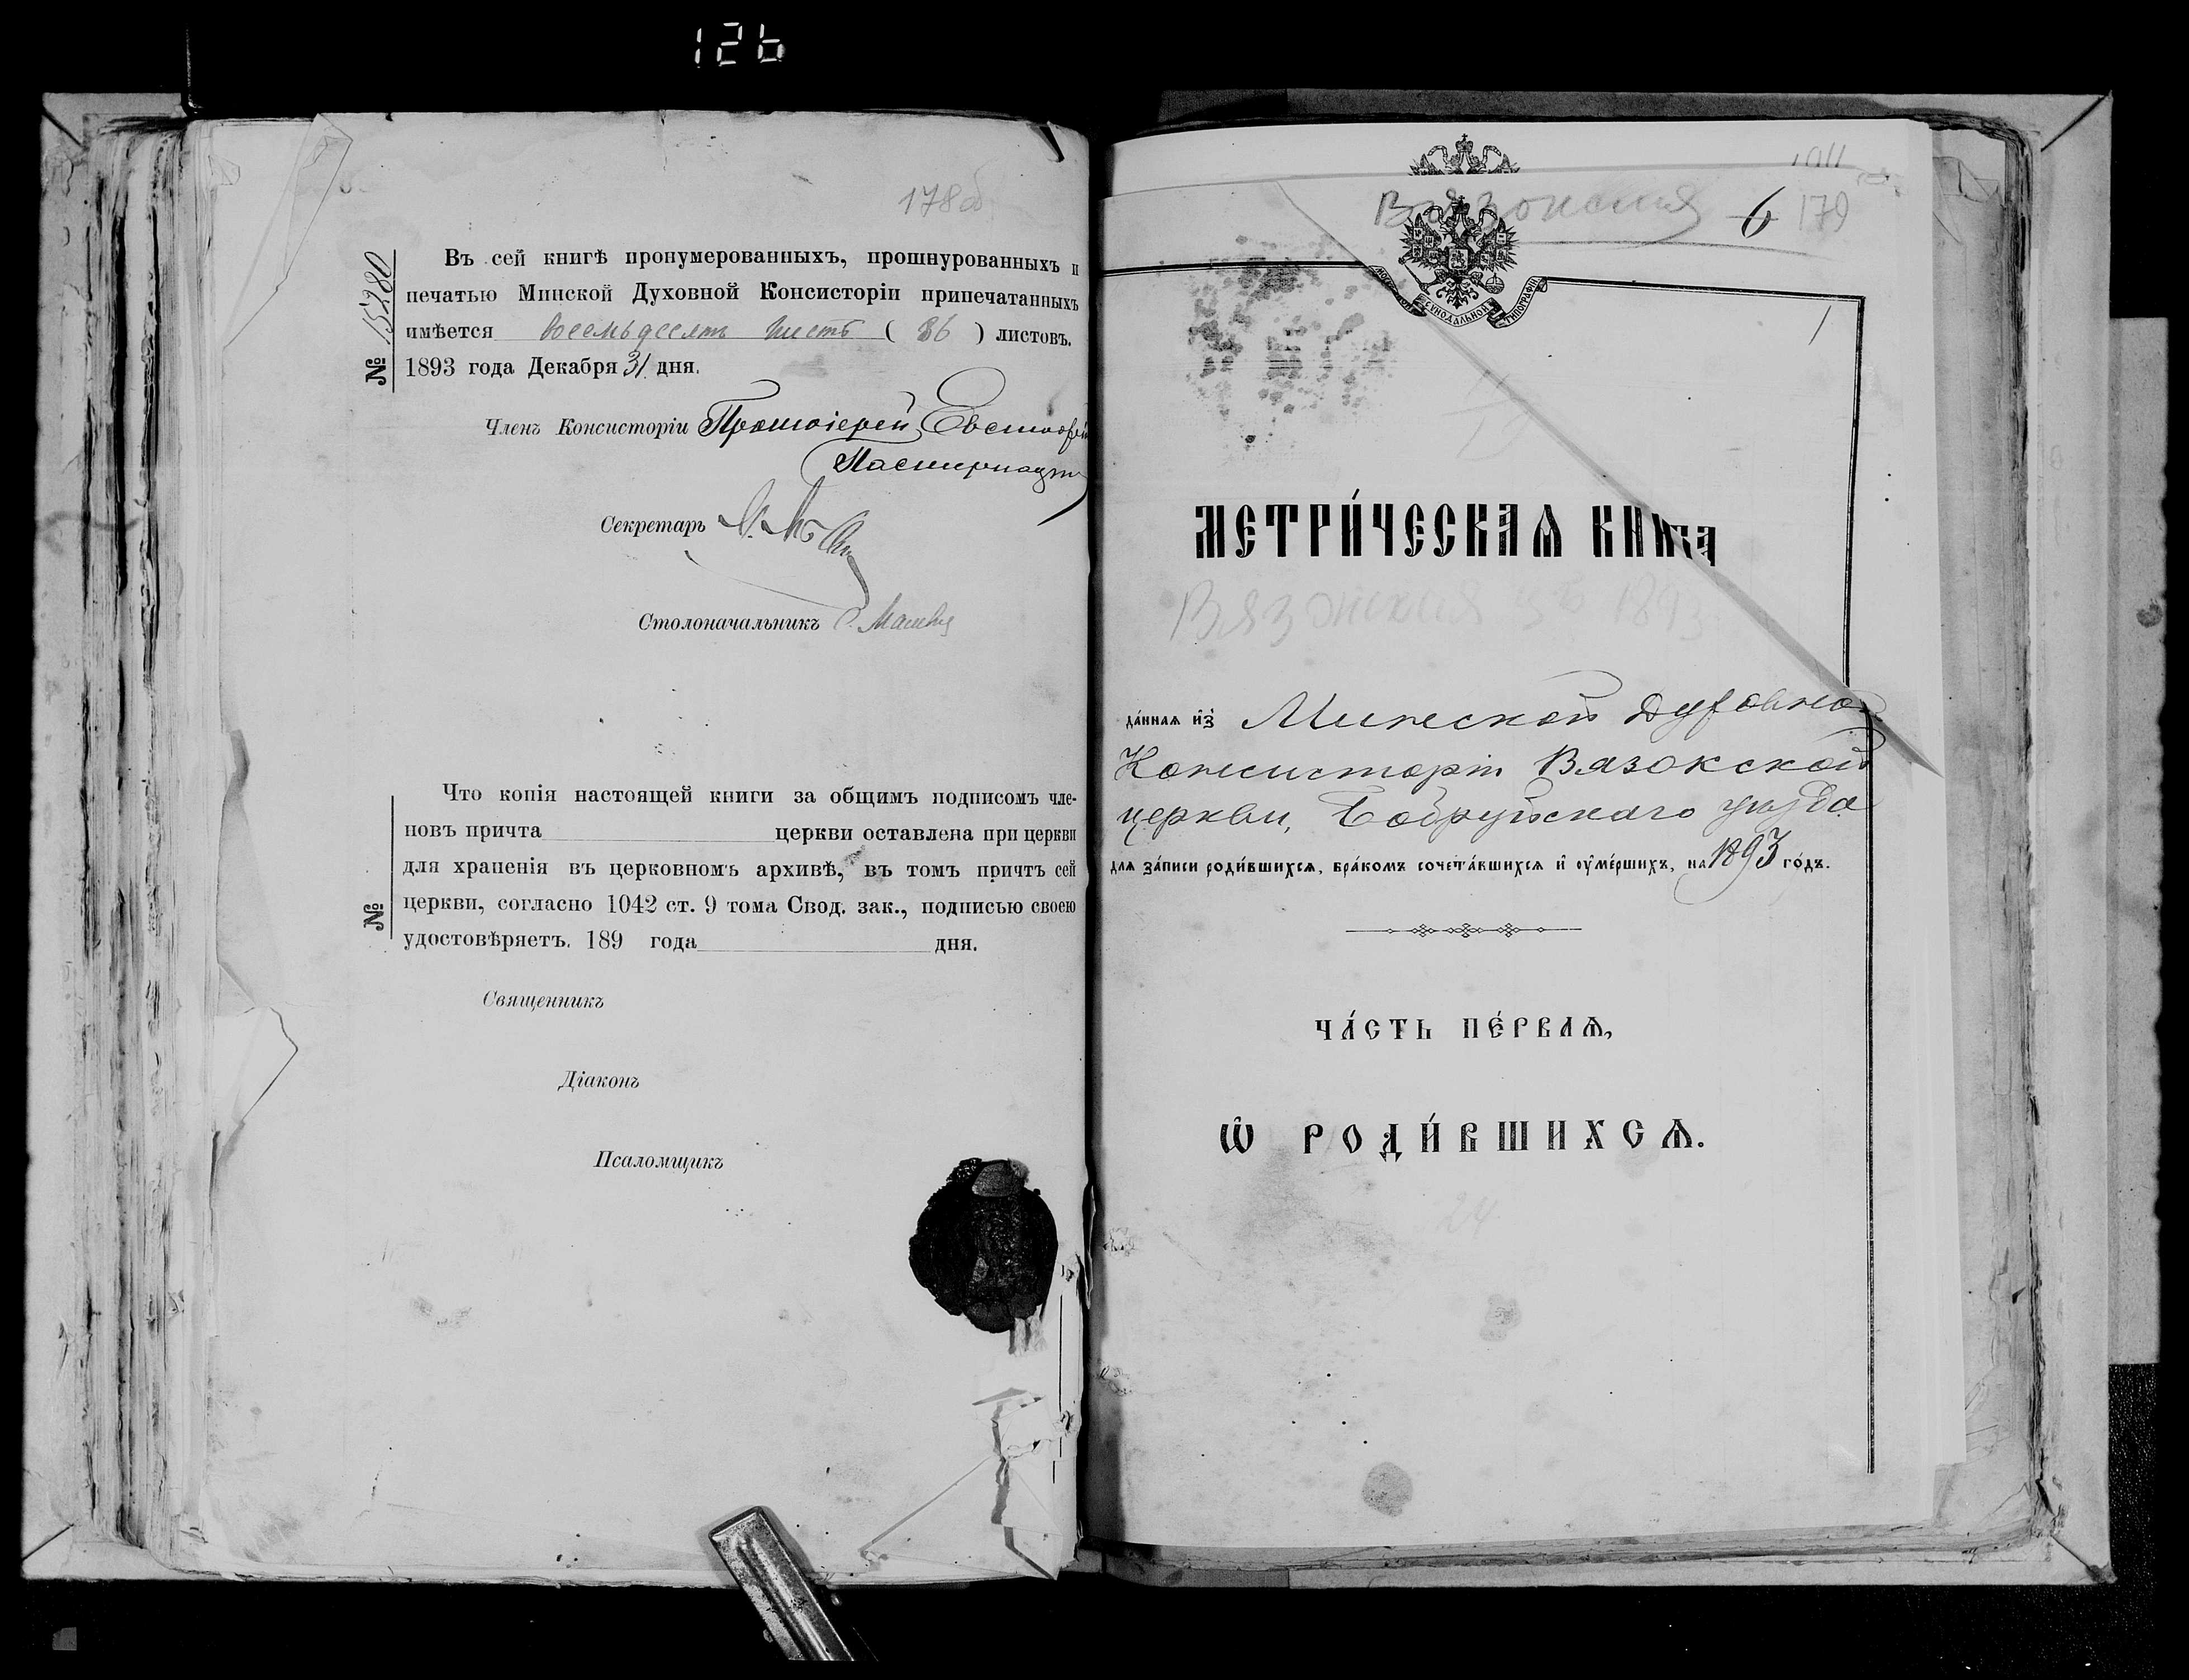 126
178об
№ 15280
Въ сей книгѣ пронумерованныхъ, прошнурованныхъ и
печатью Минской Духовной Консисторіи припечатанныхъ
имѣется восемьдесятъ шесть ( 86 ) листовъ.
1893 года Декабря 31 дня.
Членъ Консисторіи Протоіерей
Секретарь
Столоначальникъ
№
Что копія настоящей книги за общимъ подписомъ чле-
новъ причта церкви оставлена при церкви
для храненія въ церковномъ архивѣ, въ томъ причтъ сей
церкви, согласно 1042 ст. 9 тома Свод. зак., подписью своею
удостовѣряетъ. 189 года дня.
Священникъ
Діаконъ
Псаломщикъ
6 179
СѴНОДАЛЬНОЙ ТИПОГРАФІИ
1
МЕТРИ́ЧЕСКАѦ КНИГА
1893
да́ннаѧ и҆з̾ Минской Духовной
Консисторіи Вязокской
церкви, Бобруйскаго уѣзда
длѧ за́писи роди́вшихсѧ, бра́комъ сочета́вшихсѧ и҆ ᲂу҆ме́ршихъ, на 1893 го́дъ.
ЧА́СТЬ ПЕ́РВАѦ,
Ѡ҆ РОДИ́ВШИХСѦ.
24